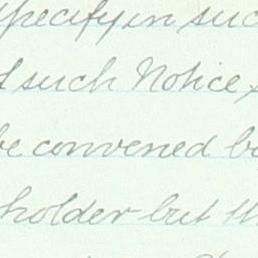 specify in suc
d such Notice s
be convened b
holder but th